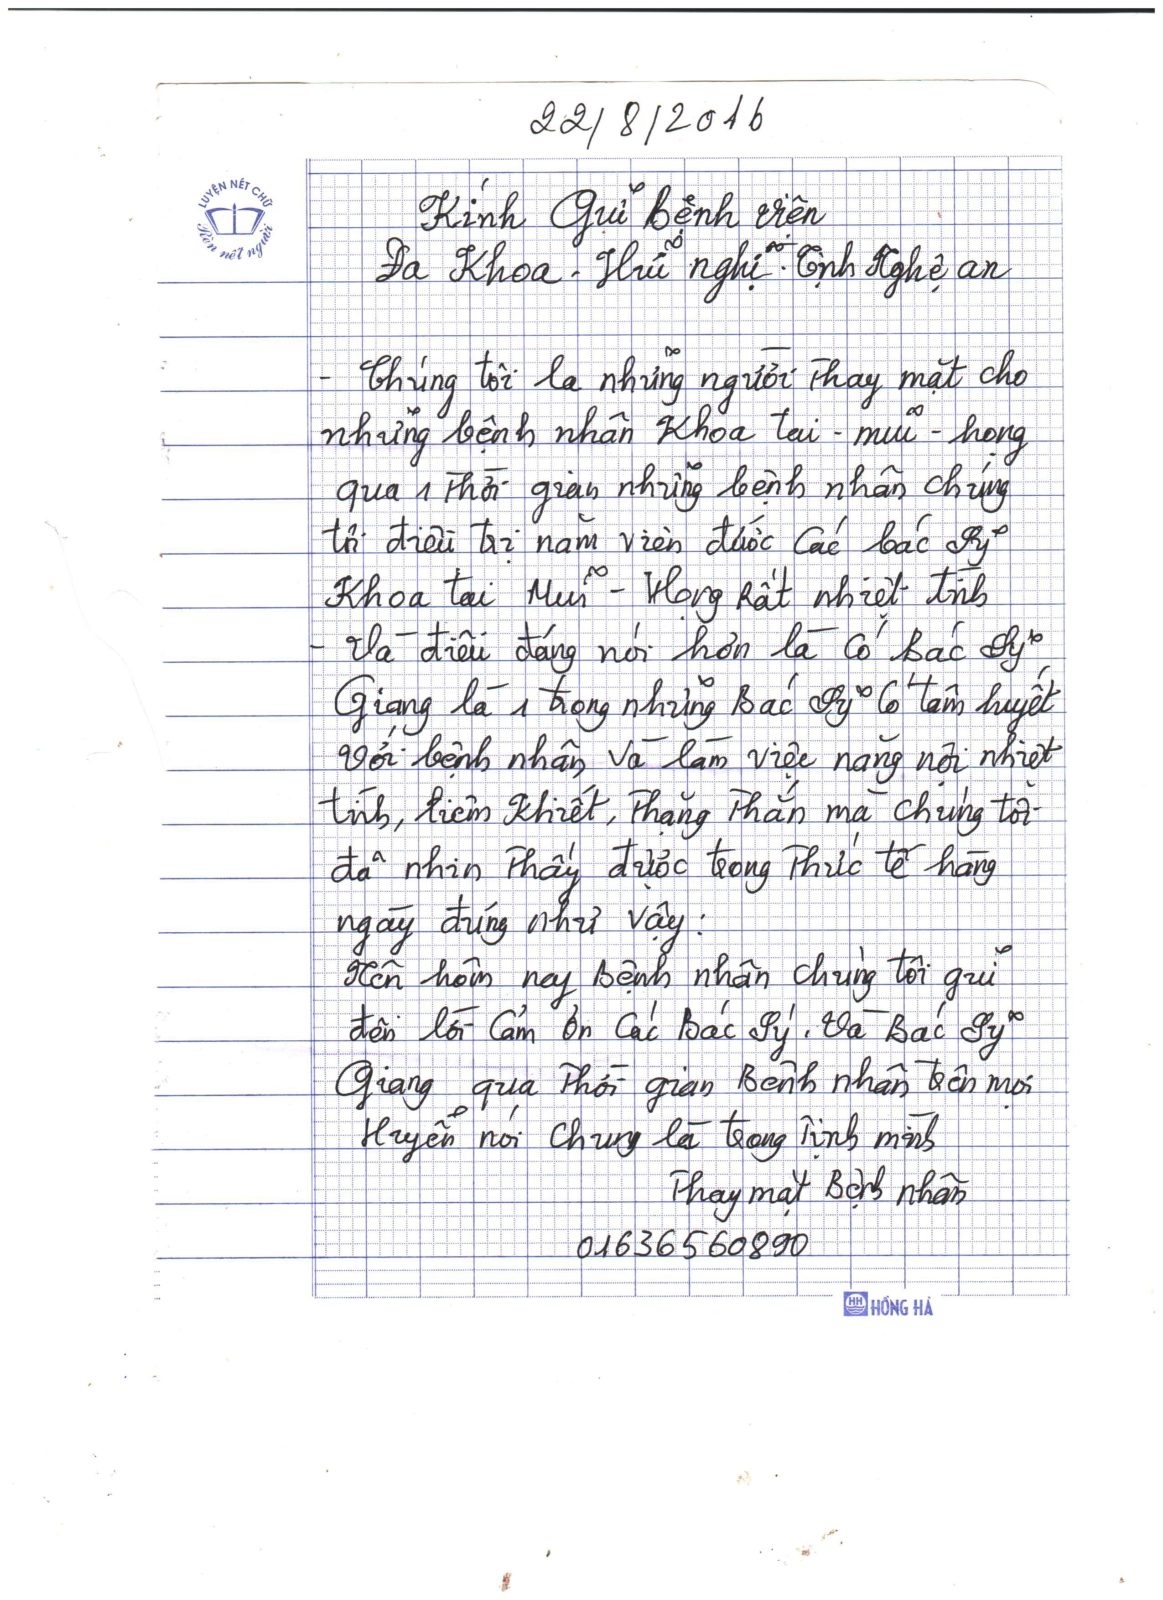 22/8/2016
LUYỆN NÉT CHỮ
Rèn nét người
Kính Gửi Bệnh viện
Đa Khoa - Hữu nghị - Tỉnh Nghệ an
- Chúng tôi là những người Thay mặt cho
những bệnh nhân Khoa tai - mũi - họng
qua 1 Thời gian những bệnh nhân chúng
tôi điều trị nằm viện được Các bác Sỹ
Khoa tai Mũi - Họng Rất nhiệt tình
- Và điều đáng nói hơn là Có Bác Sỹ
Giang là 1 trong những Bác Sỹ Có tâm huyết
Với bệnh nhân Và làm việc năng nội nhiệt
tình, liêm Khiết, Thẳng Thắn mà Chúng tôi
đã nhìn Thấy được trong Thức tế hàng
ngày đúng như Vậy.
Nên hôm nay Bệnh nhân Chúng tôi gửi
đến lời Cảm ơn Các Bác Sý. Và Bác Sỹ
Giang qua Thời gian Bệnh nhân trên mọi
Huyễn nói Chung là trong Tỉnh mình
Thay mặt Bệnh nhân
01636560890
HH HỒNG HÀ